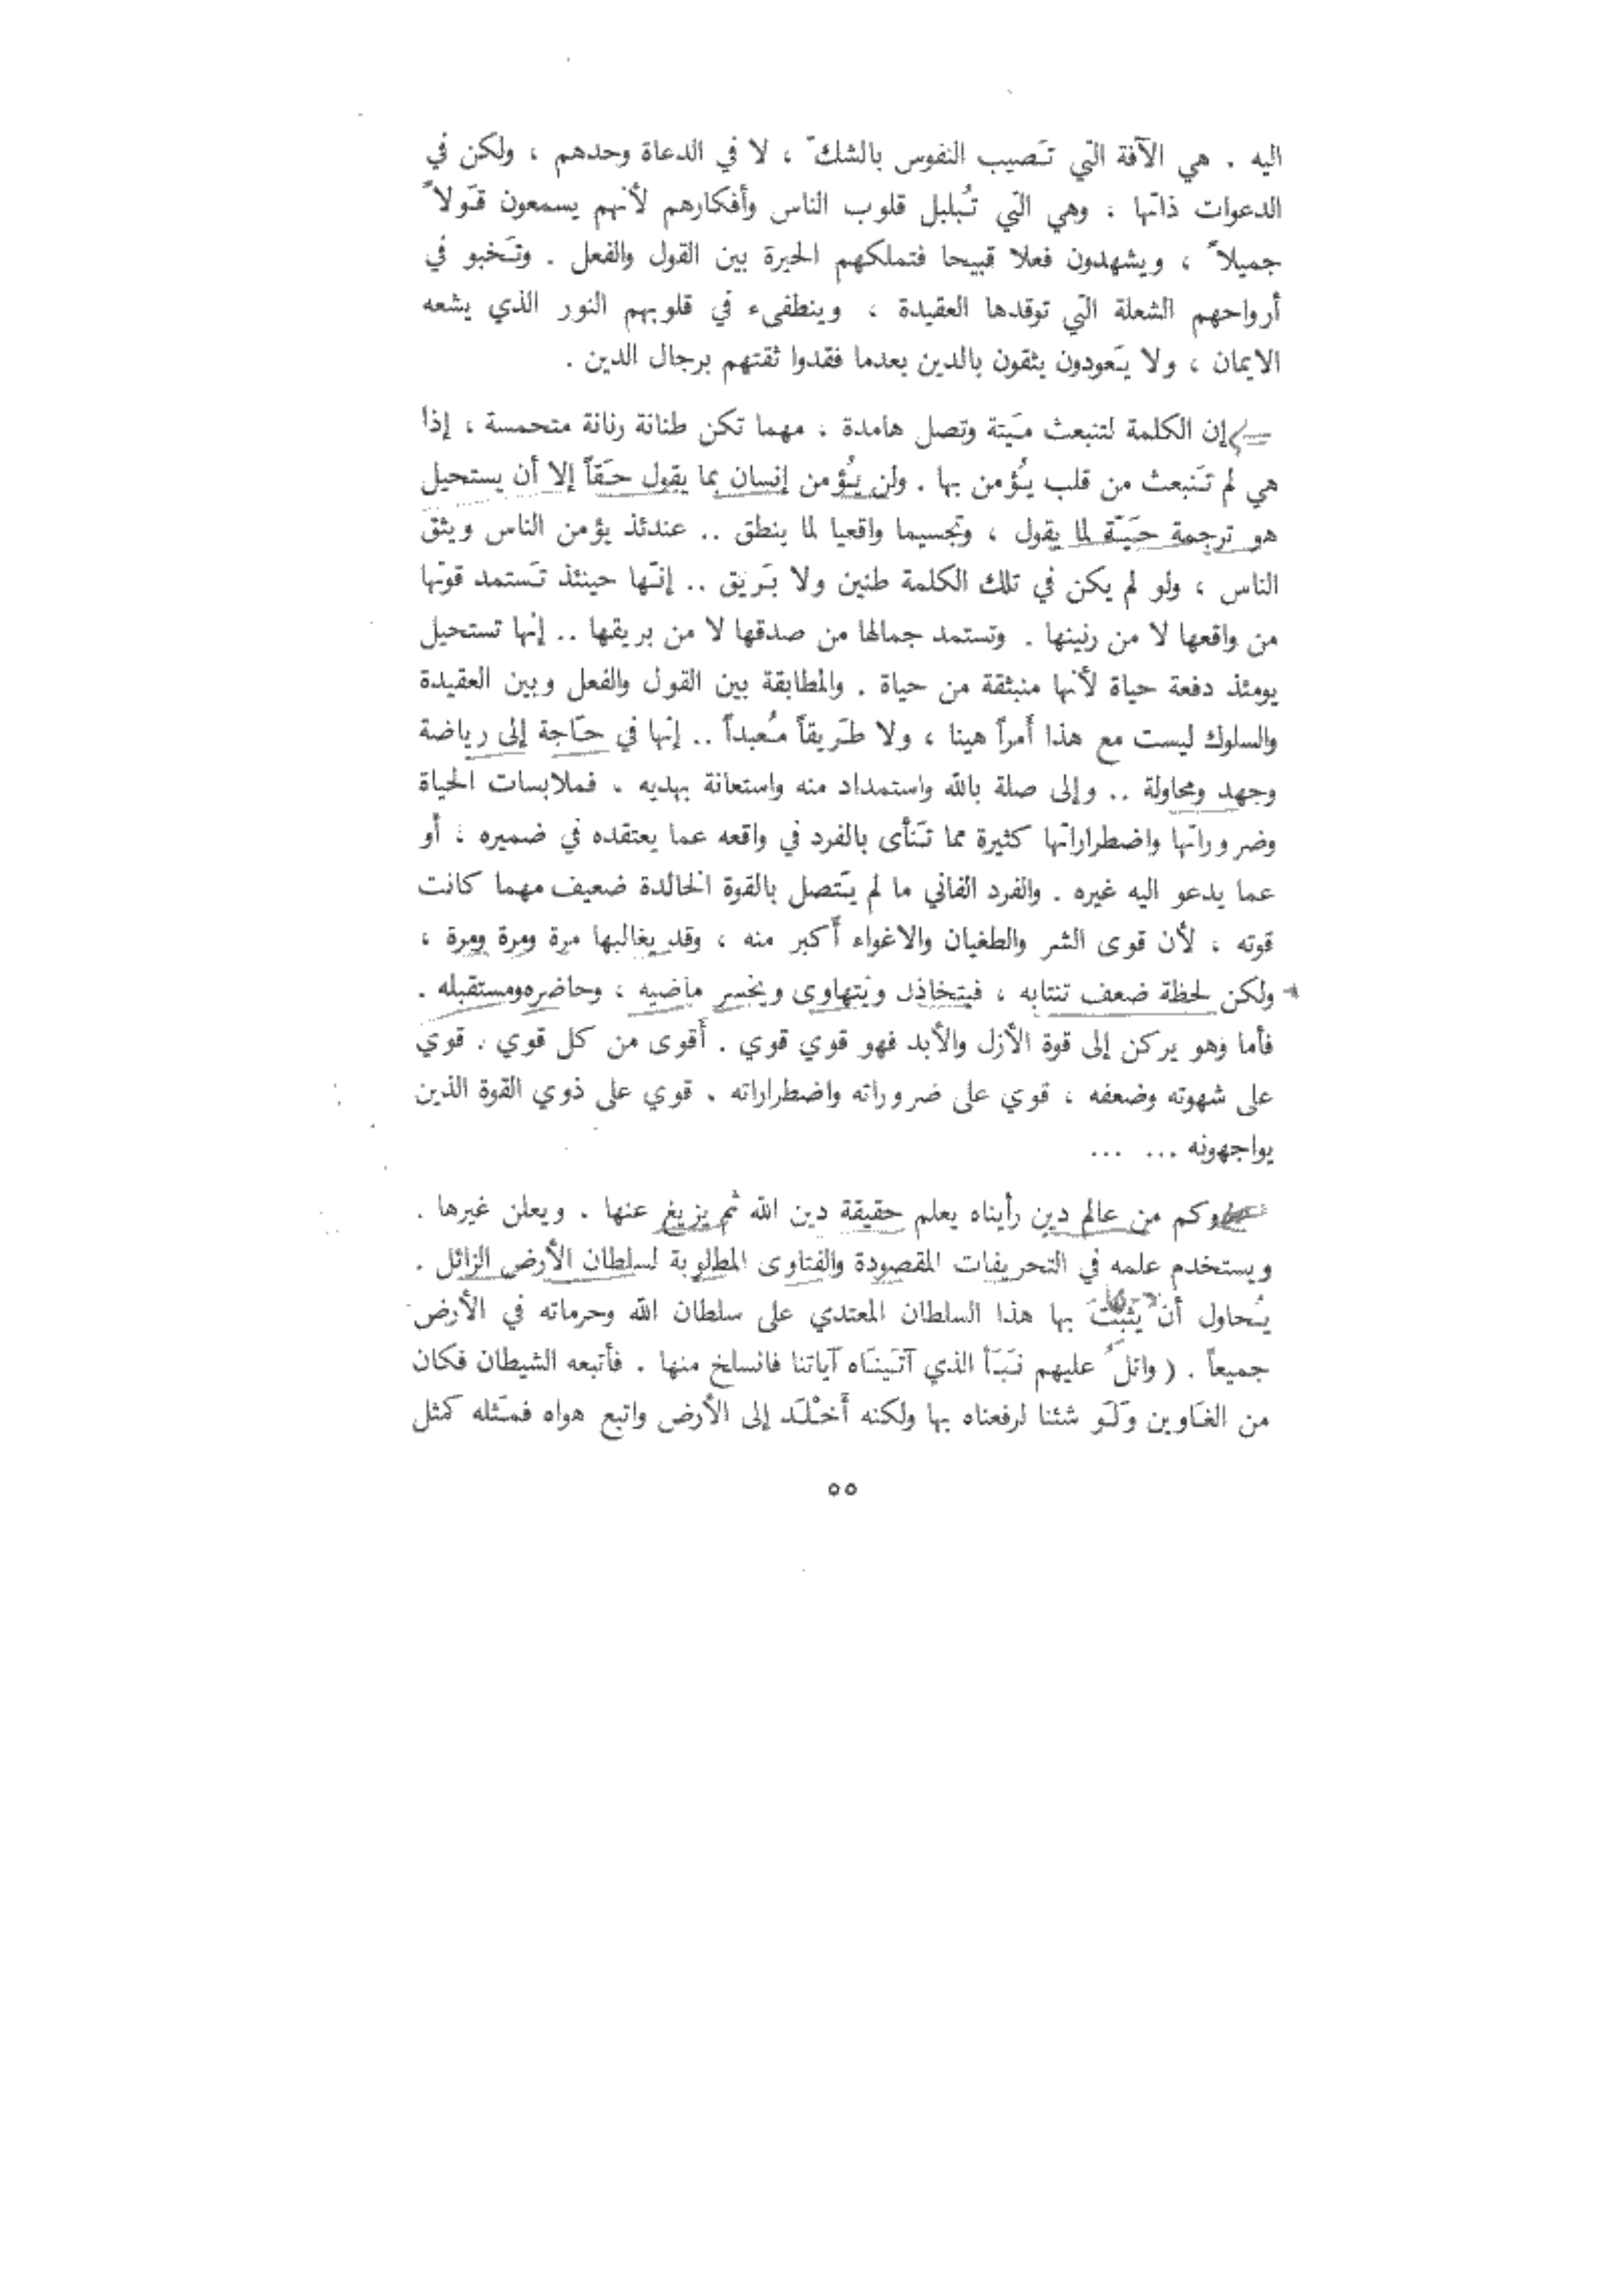 اليه . هي الآفة التي تَصيب النفوس بالشكّ ، لا في الدعاة وحدهم ، ولكن في
الدعوات ذاتها ، وهي التي تُبلبل قلوب الناس وأفكارهم لأنهم يسمعون قَولاً
جميلاً ، ويشهدون فعلا قبيحا فتملكهم الحيرة بين القول والفعل . وتَخبو في
أرواحهم الشعلة التي توقدها العقيدة ، وينطفىء في قلوبهم النور الذي يشعه
الايمان ، ولا يَعودون يثقون بالدين بعدما فقدوا ثقتهم برجال الدين .
إن الكلمة لتنبعث مَيتة وتصل هامدة ، مهما تكن طنانة رنانة متحمسة ، إذا
هي لم تَنبعث من قلب يُؤمن بها . ولن يُؤمن إنسان بما يقول حَقاً إلا أن يستحيل
هو ترجمة حَيّة لما يقول ، وتجسيما واقعيا لما ينطق .. عندئذ يؤمن الناس ويثق
الناس ، ولو لم يكن في تلك الكلمة طنين ولا بَريق .. إنّها حينئذ تَستمد قوتها
من واقعها لا من رنينها . وتستمد جمالها من صدقها لا من بريقها .. إنها تستحيل
يومئذ دفعة حياة لأنها منبثقة من حياة . والمطابقة بين القول والفعل وبين العقيدة
والسلوك ليست مع هذا أمراً هينا ، ولا طَريقاً مُعبداً .. إنها في حَاجة إلى رياضة
وجهد ومحاولة .. وإلى صلة بالله واستمداد منه واستعانة بهديه . فملابسات الحياة
وضروراتها واضطراراتها كثيرة مما تَنأى بالفرد في واقعه عما يعتقده في ضميره ، أو
عما يدعو اليه غيره . والفرد الفاني ما لم يتَصل بالقوة الخالدة ضعيف مهما كانت
قوته ، لأن قوى الشر والطغيان والاغواء أكبر منه ، وقد يغالبها مرة ومرة ومرة ،
ولكن لحظة ضعف تنتابه ، فيتخاذل ويتهاوى ويخسر ماضيه ، وحاضره ومستقبله .
فأما وهو يركن إلى قوة الأزل والأبد فهو قوي قوي . أقوى من كل قوي . قوي
على شهوته وضعفه ، قوي على ضروراته واضطراراته . قوي على ذوي القوة الذين
يواجهونه ... ...
وكم من عالم دين رأيناه يعلم حقيقة دين الله ثم يزيغ عنها . ويعلن غيرها .
ويستخدم علمه في التحريفات المقصودة والفتاوى المطلوبة لسلطان الأرض الزائل .
يُحاول أن يثبت بها هذا السلطان المعتدي على سلطان الله وحرماته في الأرض
جميعاً . ( واتلُ عليهم نَبَأ الذي آتَينَاه آياتنا فانسلخ منها . فأتبعه الشيطان فكان
من الغَاوين وَلَو شئنا لرفعناه بها ولكنه أَخْلَد إلى الأرض واتبع هواه فمَثله كمثل
٥٥